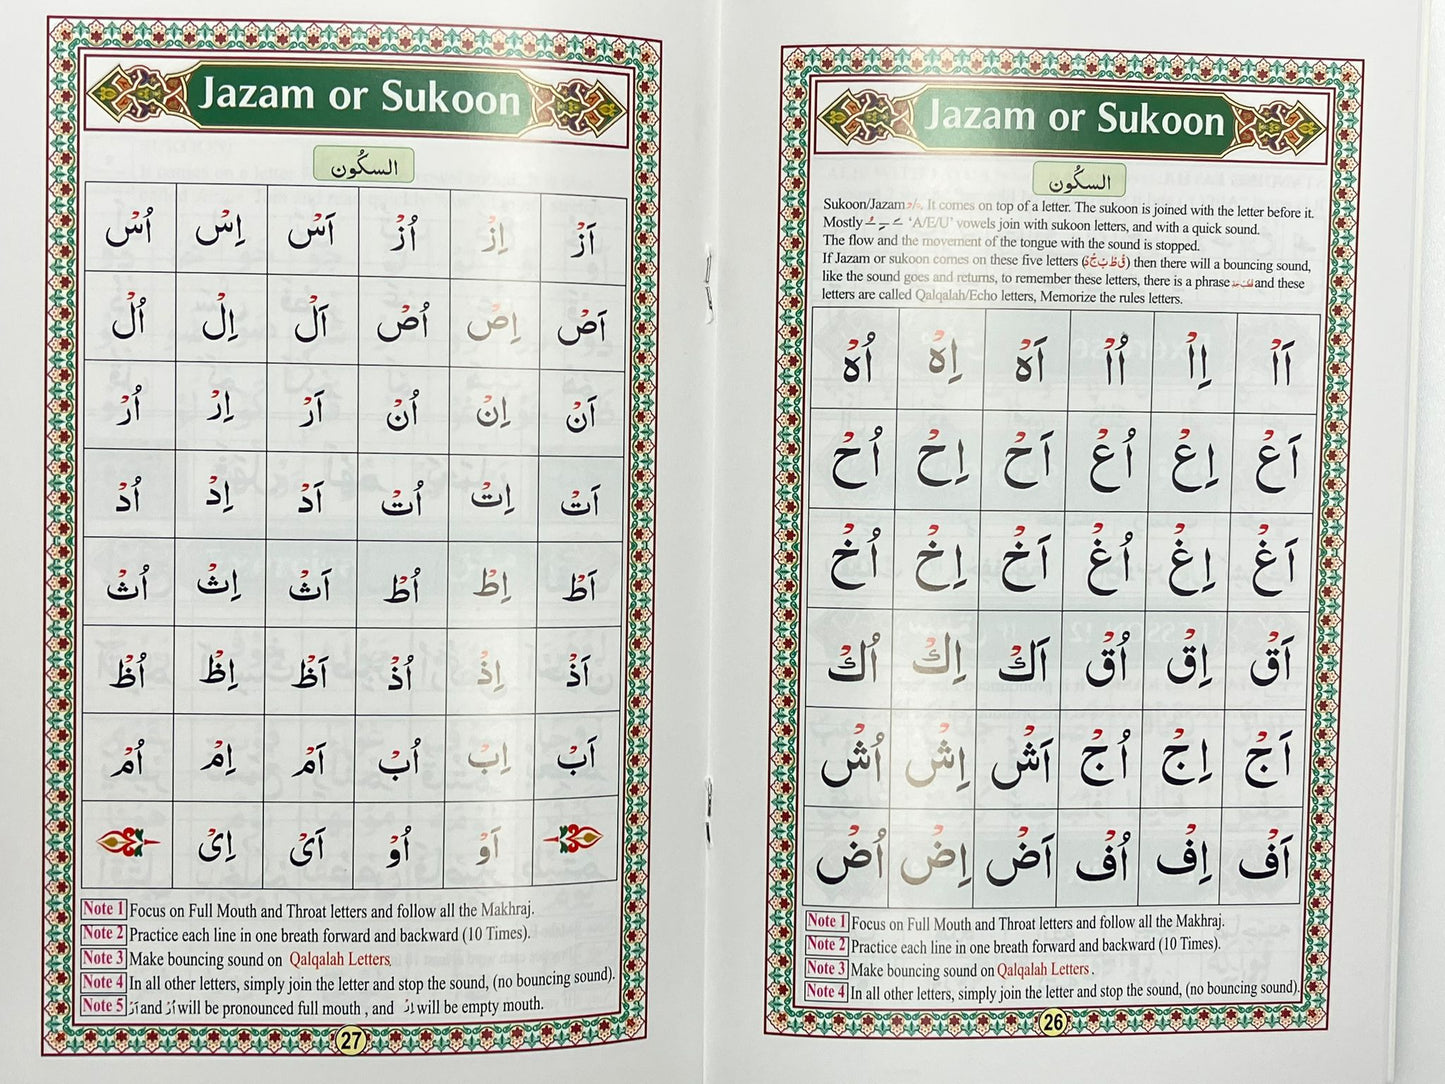 Jazam or Sukoon
السكُون
Sukoon/Jazam It comes on top of a letter. The sukoon is joined with the letter before it.
Mostly ‘A/E/U’ vowels join with sukoon letters, and with a quick sound.
The flow and the movement of the tongue with the sound is stopped.
If Jazam or sukoon comes on these five letters ( ) then there will a bouncing sound,
like the sound goes and returns, to remember these letters, there is a phrase and these
letters are called Qalqalah/Echo letters, Memorize the rules letters.
اَاْ اِاْ اُاْ اَهْ اِهْ اُهْ
اَعْ اِعْ اُعْ اَحْ اِحْ اُحْ
اَغْ اِغْ اُغْ اَخْ اِخْ اُخْ
اَقْ اِقْ اُقْ اَكْ اِكْ اُكْ
اَجْ اِجْ اُجْ اَشْ اِشْ اُشْ
اَفْ اِفْ اُفْ اَضْ اِضْ اُضْ
Note 1 Focus on Full Mouth and Throat letters and follow all the Makhraj.
Note 2 Practice each line in one breath forward and backward (10 Times).
Note 3 Make bouncing sound on Qalqalah Letters .
Note 4 In all other letters, simply join the letter and stop the sound, (no bouncing sound).
26
Jazam or Sukoon
السكُون
اَزْ اِزْ اُزْ اَسْ اِسْ اُسْ
اَصْ اِصْ اُصْ اَلْ اِلْ اُلْ
اَنْ اِنْ اُنْ اَرْ اِرْ اُرْ
اَتْ اِتْ اُتْ اَدْ اِدْ اُدْ
اَطْ اِطْ اُطْ اَثْ اِثْ اُثْ
اَذْ اِذْ اُذْ اَظْ اِظْ اُظْ
اَبْ اِبْ اُبْ اَمْ اِمْ اُمْ
اَوْ اُوْ اَىْ اِىْ
Note 1 Focus on Full Mouth and Throat letters and follow all the Makhraj.
Note 2 Practice each line in one breath forward and backward (10 Times).
Note 3 Make bouncing sound on Qalqalah Letters.
Note 4 In all other letters, simply join the letter and stop the sound, (no bouncing sound).
Note 5 and will be pronounced full mouth , and will be empty mouth.
27